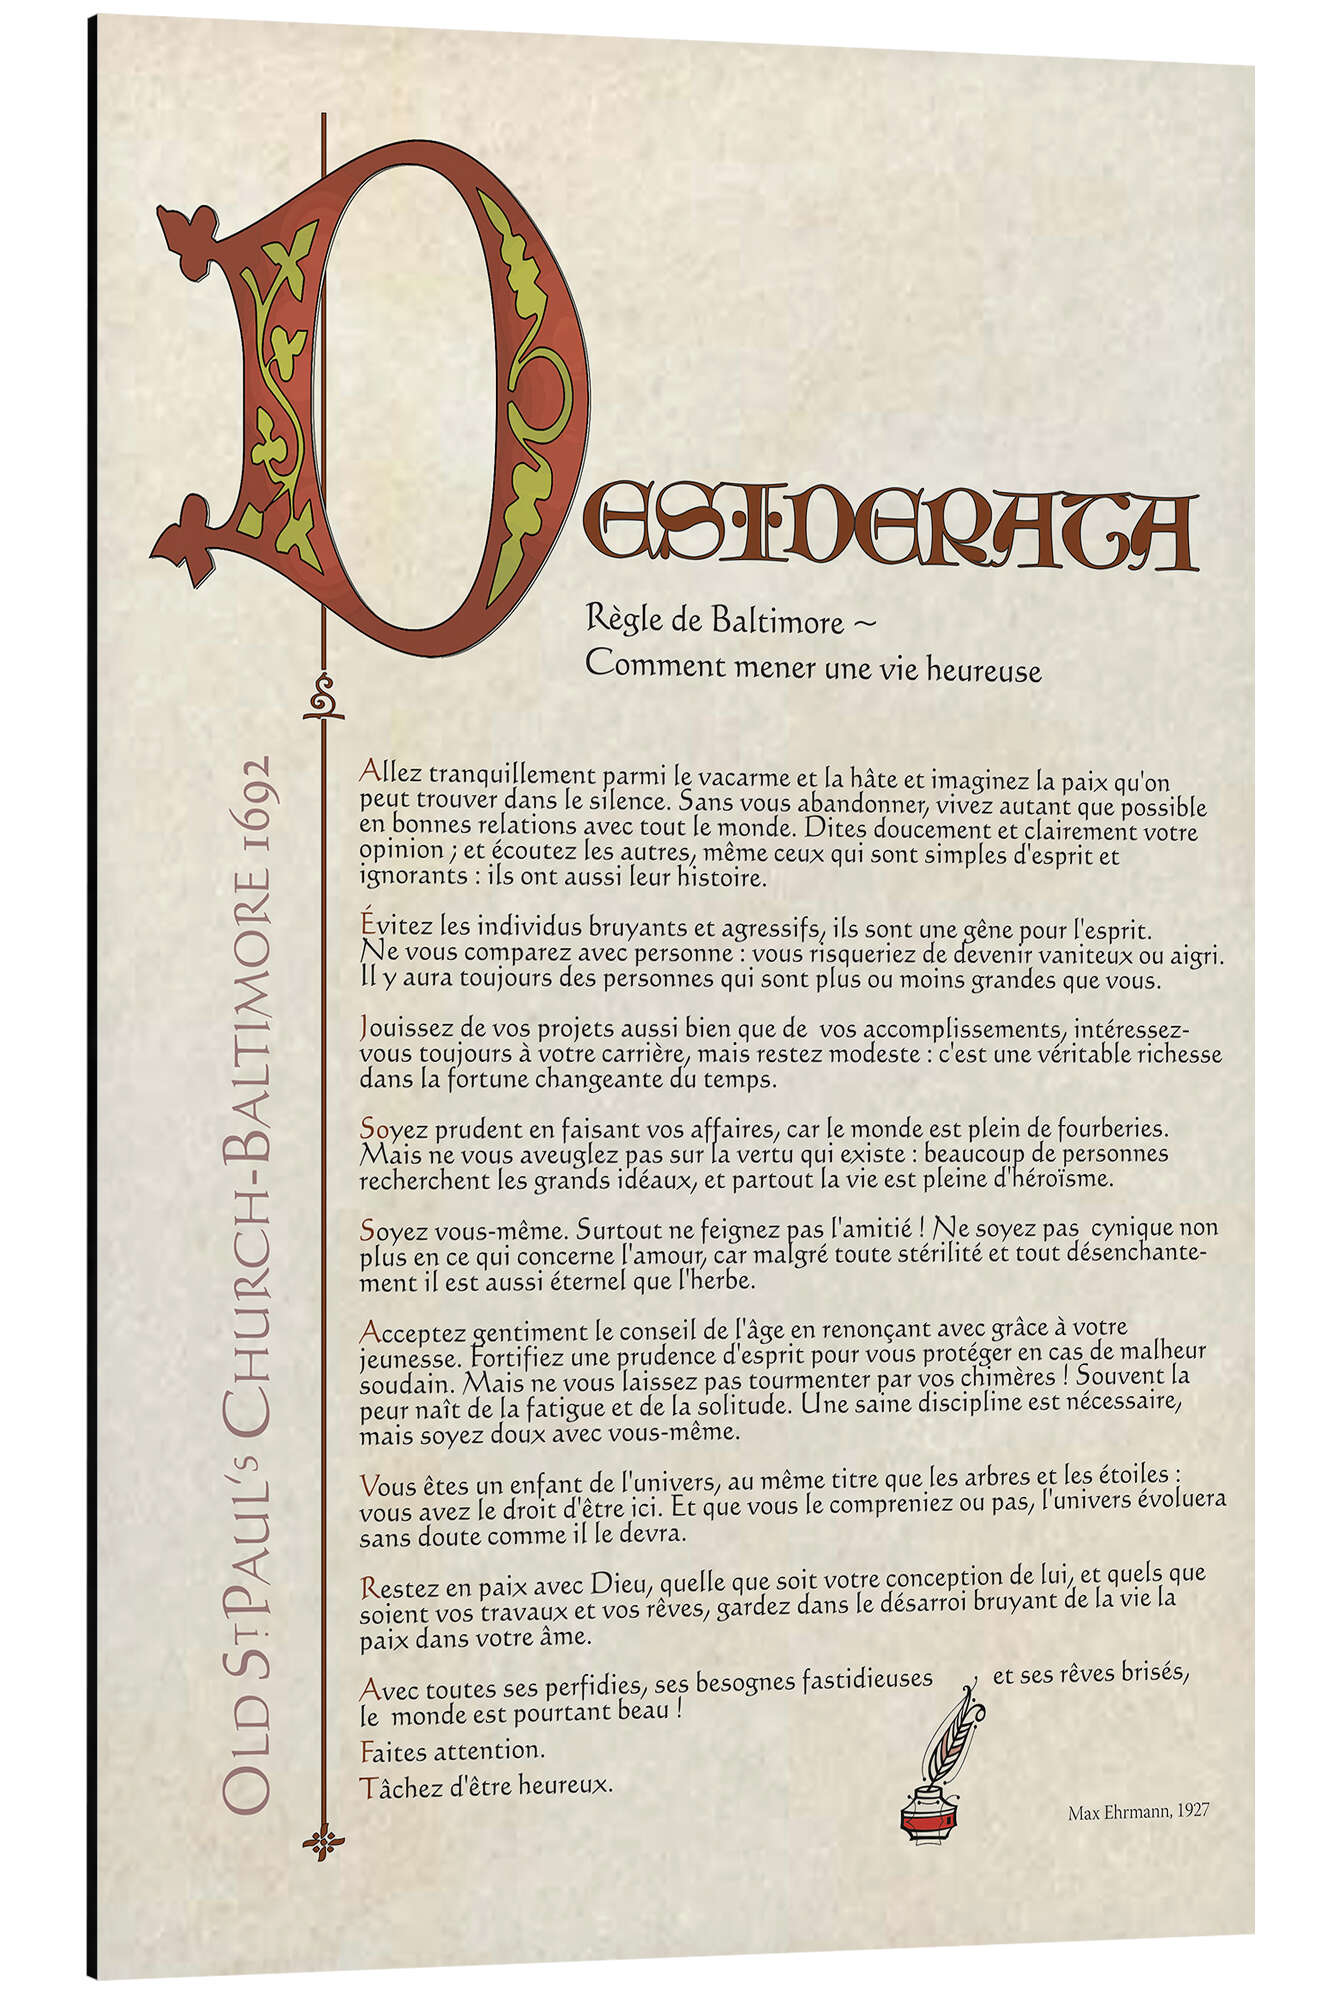 DESIDERATA
Règle de Baltimore ~
Comment mener une vie heureuse
OLD ST. PAUL'S CHURCH-BALTIMORE 1692
Allez tranquillement parmi le vacarme et la hâte et imaginez la paix qu'on
peut trouver dans le silence. Sans vous abandonner, vivez autant que possible
en bonnes relations avec tout le monde. Dites doucement et clairement votre
opinion ; et écoutez les autres, même ceux qui sont simples d'esprit et
ignorants : ils ont aussi leur histoire.
Évitez les individus bruyants et agressifs, ils sont une gêne pour l'esprit.
Ne vous comparez avec personne : vous risqueriez de devenir vaniteux ou aigri.
Il y aura toujours des personnes qui sont plus ou moins grandes que vous.
Jouissez de vos projets aussi bien que de vos accomplissements, intéressez-
vous toujours à votre carrière, mais restez modeste : c'est une véritable richesse
dans la fortune changeante du temps.
Soyez prudent en faisant vos affaires, car le monde est plein de fourberies.
Mais ne vous aveuglez pas sur la vertu qui existe : beaucoup de personnes
recherchent les grands idéaux, et partout la vie est pleine d'héroïsme.
Soyez vous-même. Surtout ne feignez pas l'amitié ! Ne soyez pas cynique non
plus en ce qui concerne l'amour, car malgré toute stérilité et tout désenchante-
ment il est aussi éternel que l'herbe.
Acceptez gentiment le conseil de l'âge en renonçant avec grâce à votre
jeunesse. Fortifiez une prudence d'esprit pour vous protéger en cas de malheur
soudain. Mais ne vous laissez pas tourmenter par vos chimères ! Souvent la
peur naît de la fatigue et de la solitude. Une saine discipline est nécessaire,
mais soyez doux avec vous-même.
Vous êtes un enfant de l'univers, au même titre que les arbres et les étoiles :
vous avez le droit d'être ici. Et que vous le compreniez ou pas, l'univers évoluera
sans doute comme il le devra.
Restez en paix avec Dieu, quelle que soit votre conception de lui, et quels que
soient vos travaux et vos rêves, gardez dans le désarroi bruyant de la vie la
paix dans votre âme.
Avec toutes ses perfidies, ses besognes fastidieuses et ses rêves brisés,
le monde est pourtant beau !
Faites attention.
Tâchez d'être heureux.
Max Ehrmann, 1927